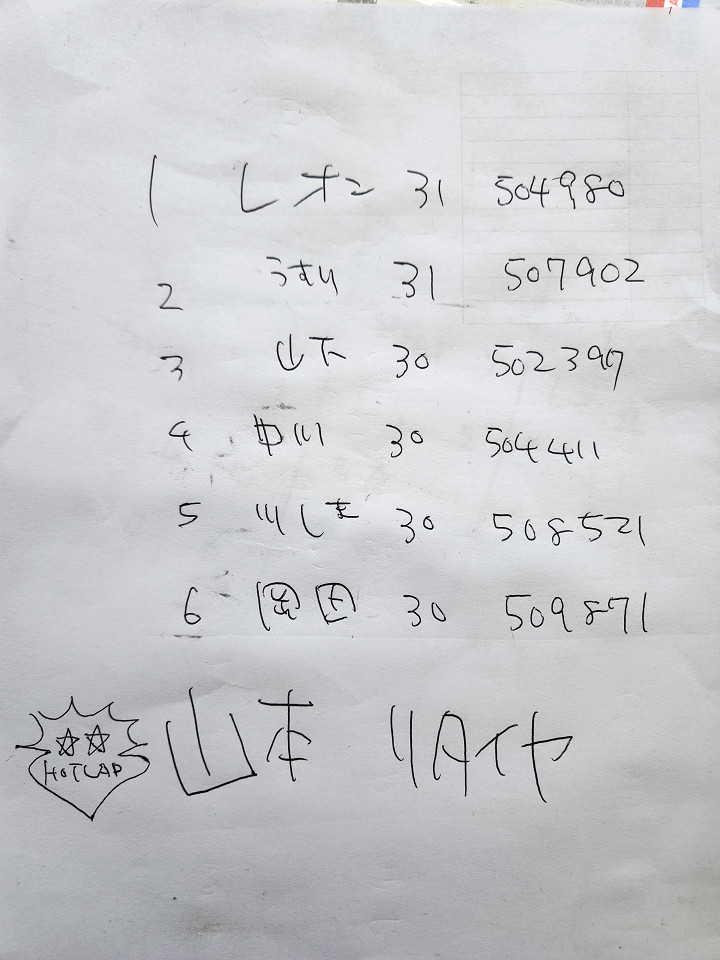 1 レオン 31 504980
2 うすい 31 507902
3 山下 30 502397
4 中川 30 504411
5 川しま 30 508521
6 岡田 30 509871
☆☆ HOTLAP
山本 リタイヤ